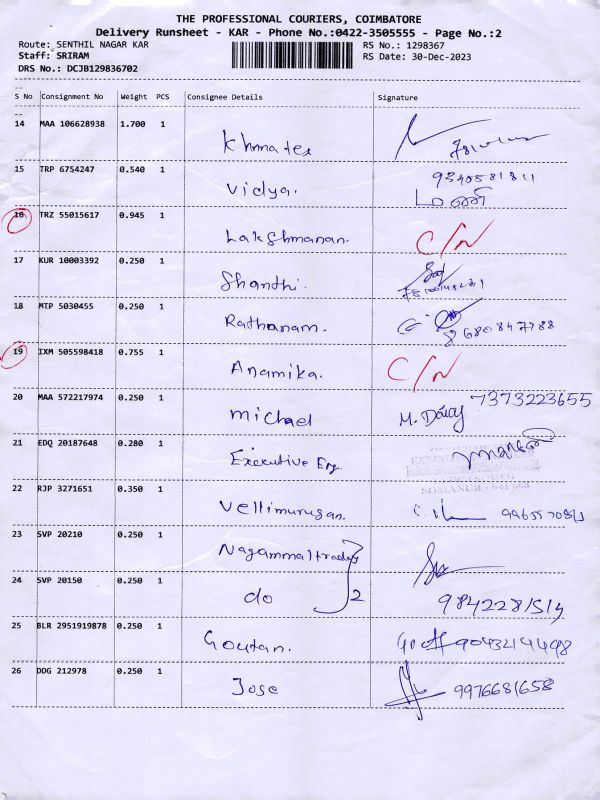 THE PROFESSIONAL COURIERS, COIMBATORE
Delivery Runsheet - KAR - Phone No.:0422-3505555 - Page No.:2
Route: SENTHIL NAGAR KAR RS No.: 1298367
Staff: SRIRAM RS Date: 30-Dec-2023
DRS No.: DCJB129836702
S No Consignment No Weight PCS Consignee Details Signature
14 MAA 106628938 1.700 1
15 TRP 6754247 0.540 1 Vidya.
16 TRZ 55015617 0.945 1 Lakshmanan. C/N
17 KUR 10003392 0.250 1 Shanthi.
18 MTP 5030455 0.250 1 Rathanam. 8680847788
19 IXM 505598418 0.755 1 Anamika. C/N
20 MAA 572217974 0.250 1 Michael M. 7373223655
21 EDQ 20187648 0.280 1 Executive Eng.
22 RJP 3271651 0.350 1 Vellimurugan.
23 SVP 20210 0.250 1 Nagammal traders
24 SVP 20150 0.250 1 do 2
25 BLR 2951919878 0.250 1 Goutan.
26 DDG 212978 0.250 1 Jose 9976681658